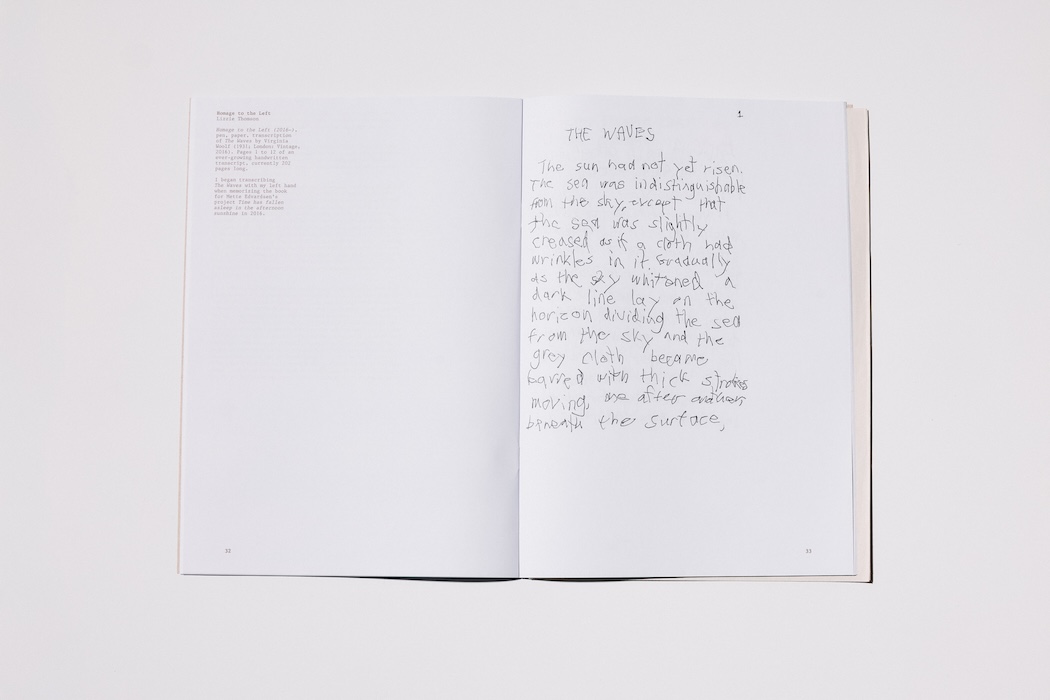 Homage to the Left
Lizzie Thomson
Homage to the Left (2016–),
pen, paper, transcription
of The Waves by Virginia
Woolf (1931; London: Vintage,
2016). Pages 1 to 17 of an
ever-growing handwritten
transcript, currently 202
pages long.
I began transcribing
The Waves with my left hand
when memorising the book
for Mette Edvardsen's
project Time has fallen
asleep in the afternoon
sunshine in 2016.
32
1
THE WAVES
The sun had not yet risen.
The sea was indistinguishable
from the sky, except that
the sea was slightly
creased as if a cloth had
wrinkles in it. Gradually
as the sky whitened a
dark line lay on the
horizon dividing the sea
from the sky and the
grey cloth became
barred with thick strokes
moving, one after another,
beneath the surface,
33